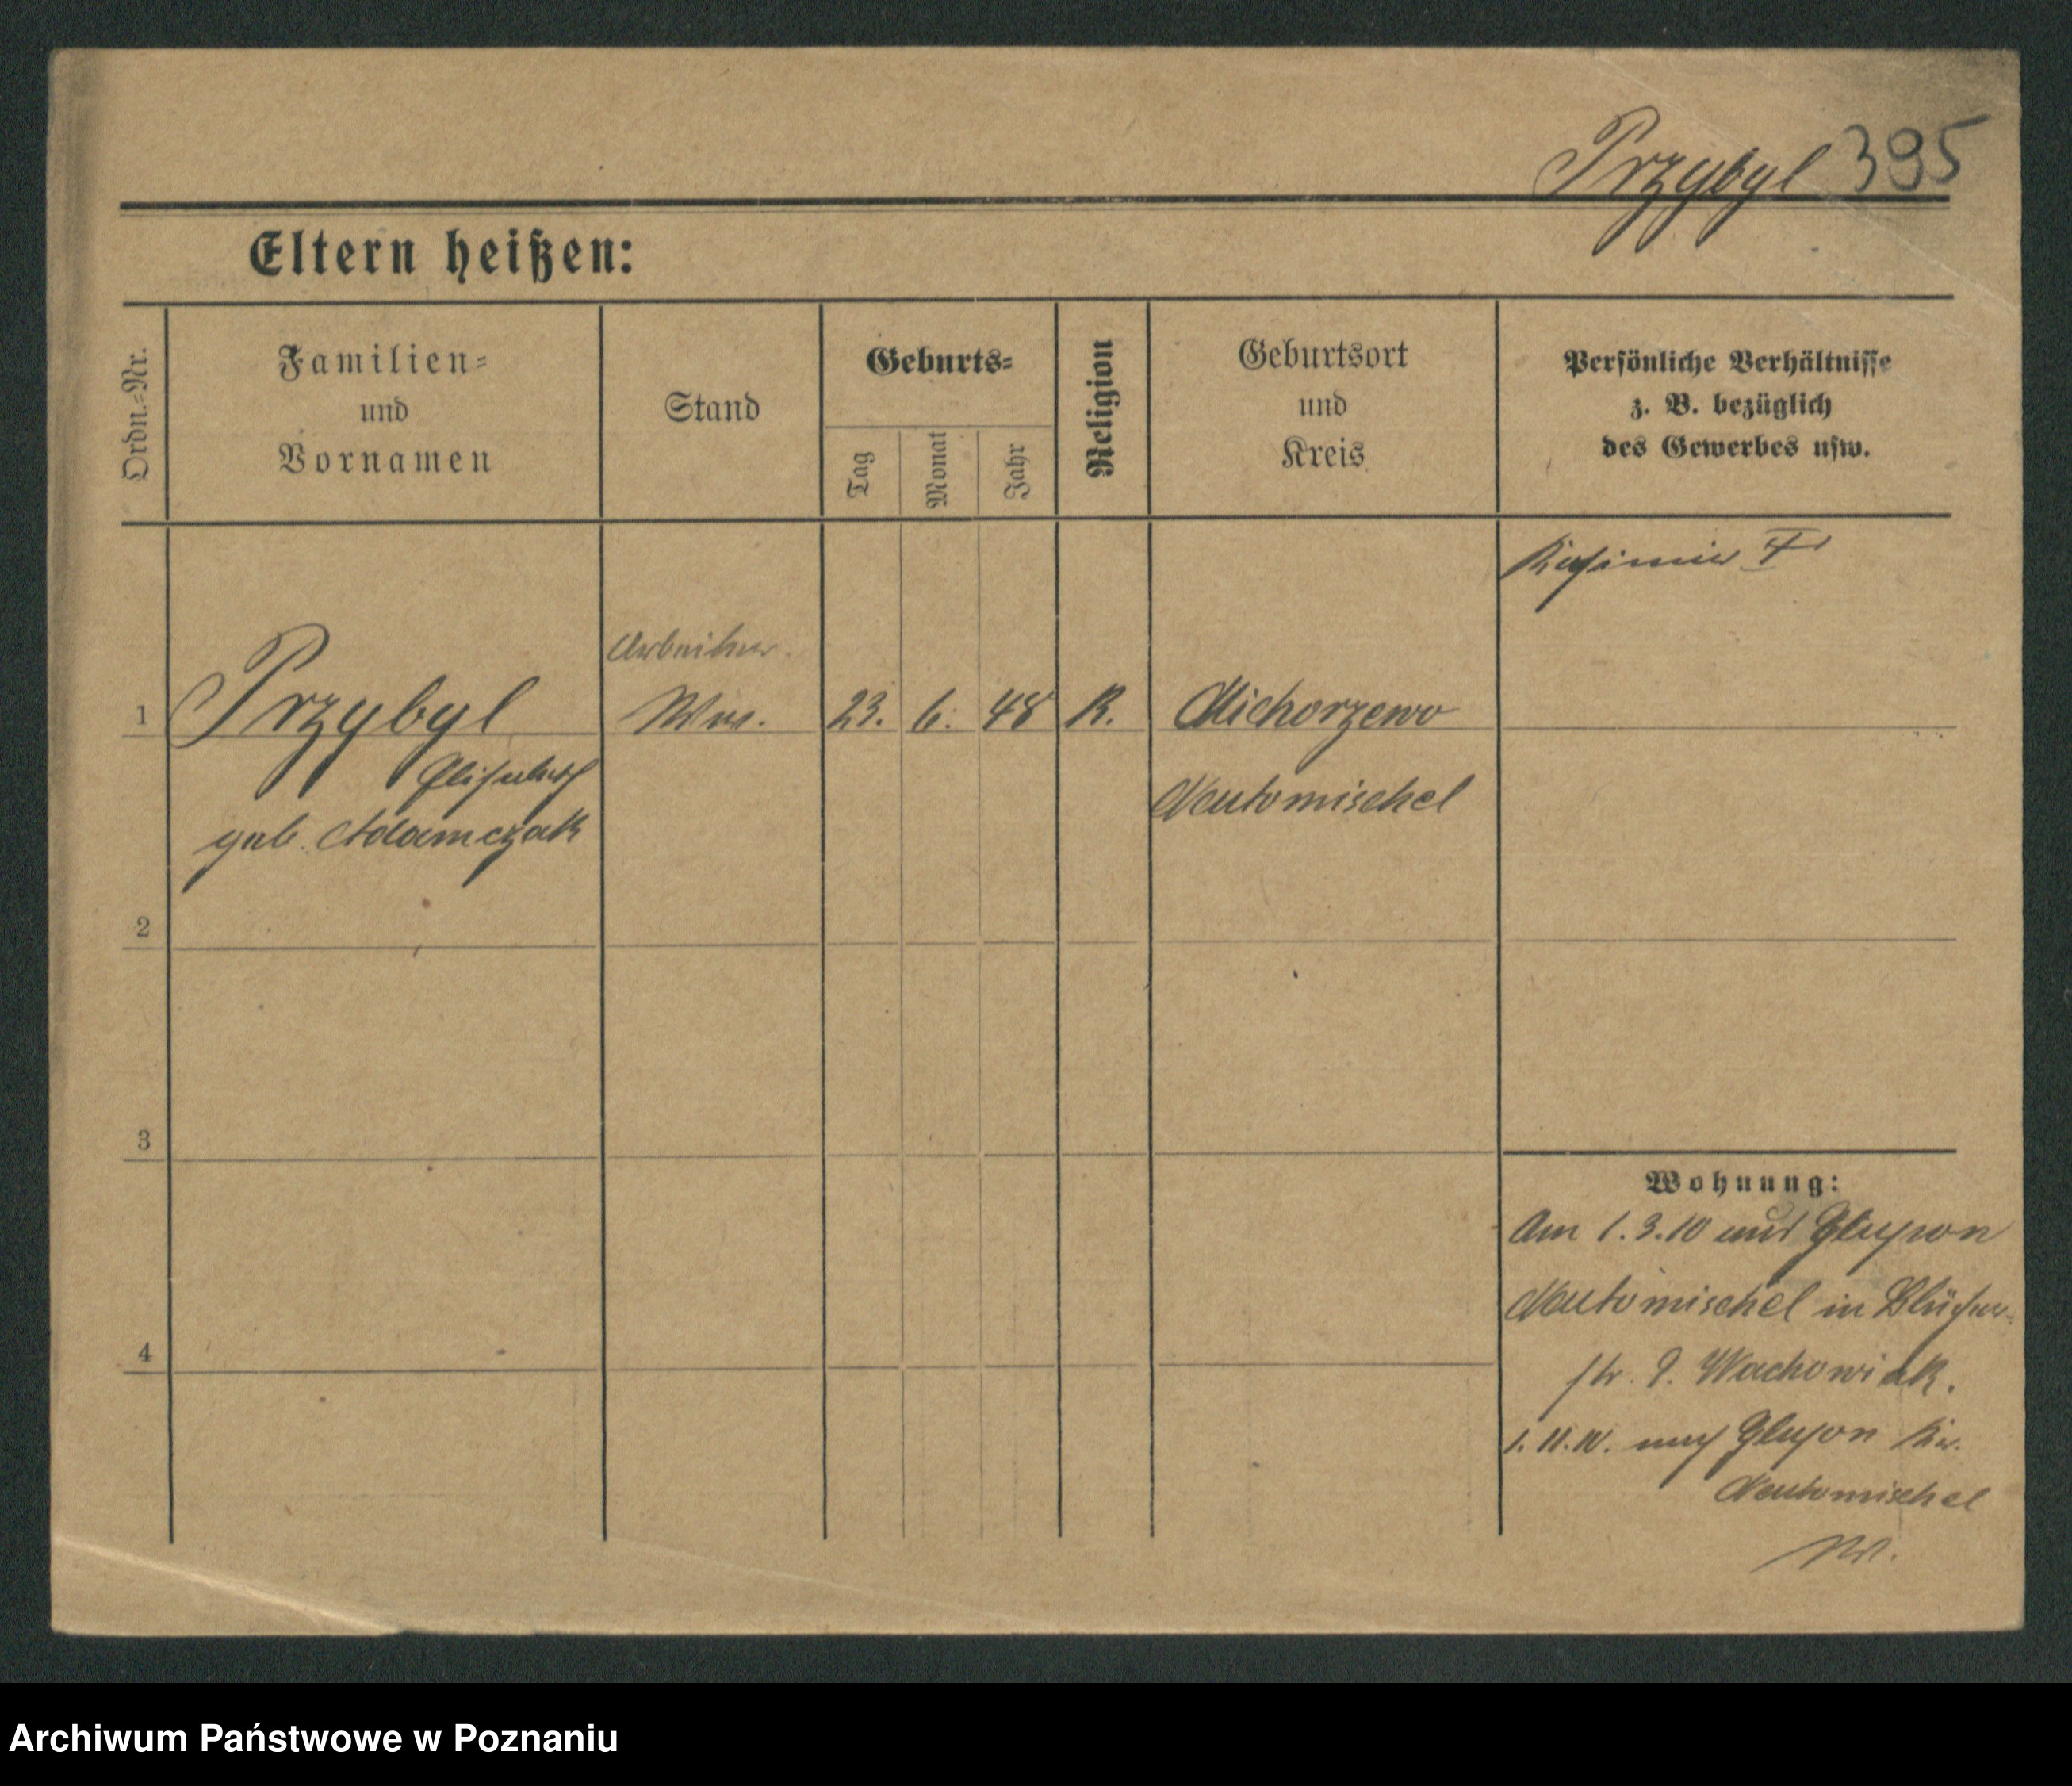 Przybyl 395
Eltern heißen:
Ordn.-Nr.
Familien-
und
Vornamen
Stand
Geburts-
Tag
Monat
Jahr
Religion
Geburtsort
und
Kreis
Persönliche Verhältnisse
z. B. bezüglich
des Gewerbes usw.
Kasimir
Arbeiter
1 Przybyl Ww. 23. 6. 48 K. Michorzewo
Elisabeth
Neutomischel
geb. Adamczak
2
3
Wohnung:
Am 1.3.10 aus Glupon
Neutomischel in Blücher-
4
str. 9. Wachowiak.
1. 11. 10. nach Glupon Kr.
Neutomischel
W.
Archiwum Państwowe w Poznaniu